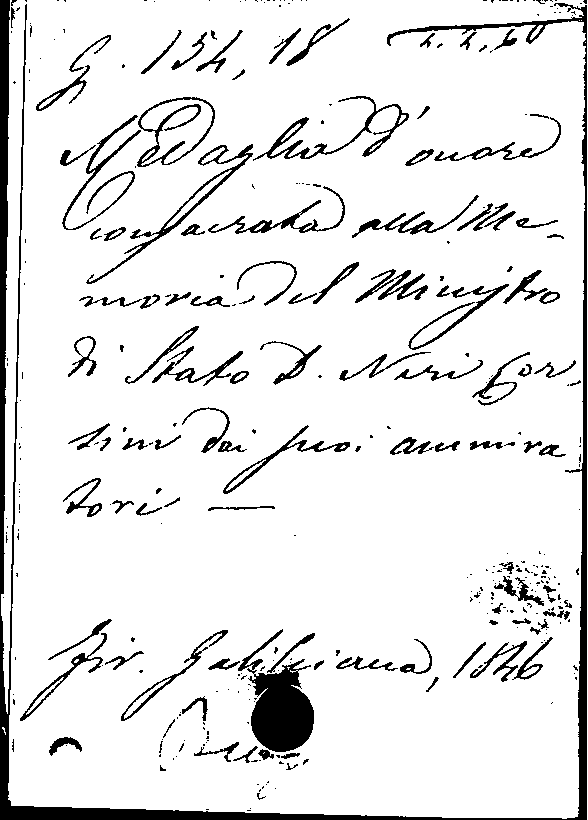 G. 154, 18 2.2,60
Medaglia d'onore
consacrata alla Me-
moria del Ministro
di Stato D. Neri Cor-
sini dai suoi ammira-
tori —
Fir. Galileiana, 1846